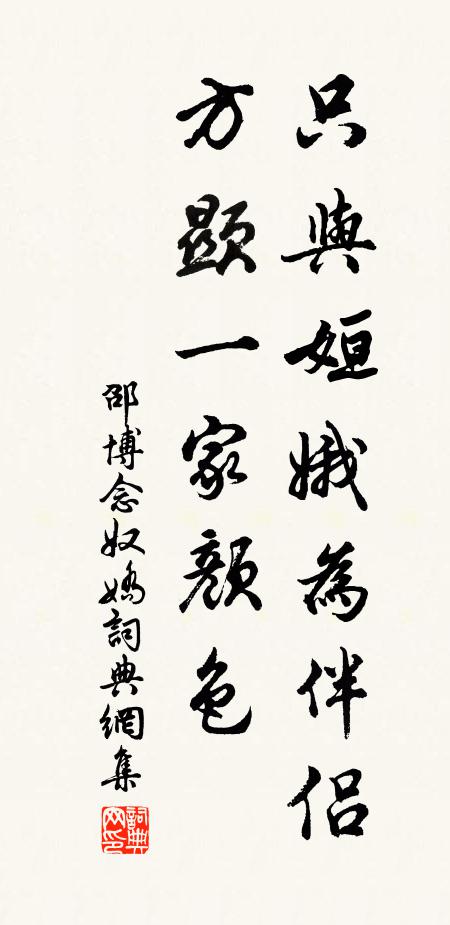 只與姮娥為伴侶
方顯一家顏色
邵博念奴嬌詞典網集
詞典
网印